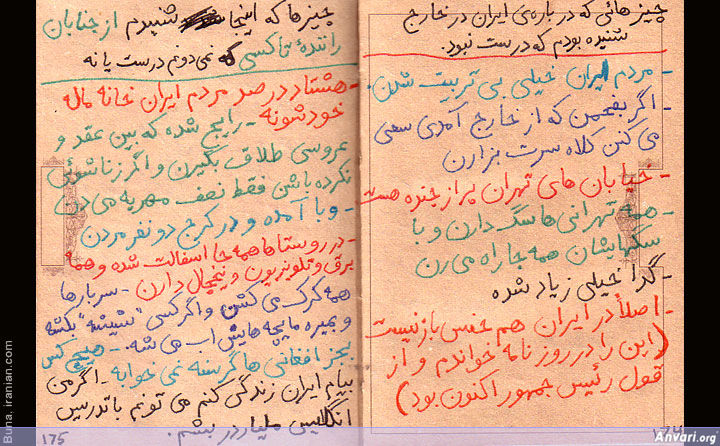 چیز هائی که در باره‌ی ایران در خارج
شنیده بودم که درست نبود.
- مردم ایران خیلی بی تربیت شدن.
- اگر بفهمن که از خارج آمدی سعی
می کنن کلاه سرت بزارن
- خیابان های تهران پر از جنده هست
- همه تهرانی ها سگ دارن و با
سگهایشان همه جا راه می رن
- گدا خیلی زیاد شده
- اصلاً در ایران هم جنس باز نیست
(این را در روزنامه خواندم و از
قول رئیس جمهور اکنون بود)
174
چیزها که اینجا شنیدم از جنابان
رانندهٔ تاکسی که نمی دونم درست یا نه
- هشتاد درصد مردم ایران خانه ماله
خودشونه - رایج شده که بین عقد و
عروسی طلاق بگیرن و اگر زناشوئی
نکرده باشن فقط نصف مهریه می دن
- وبا آمده و در کرج دو نفر مردن
- در روستاها همه جا اسفالت شده و همه
برق و تلویزیون و یخچال دارن - سربازها
همه کرک می کشن و اگر کسی "شیشه" بکشه
و بمیره ماهیچه هایش آب می شه. - هیچ کس
بجز افغانی ها گرسنه نمی خوابه - اگر من
بیام ایران زندگی کنم می تونم با تدریس
انگلیسی میلیاردر بشم.
175
Buna, iranian.com
Anvari.org